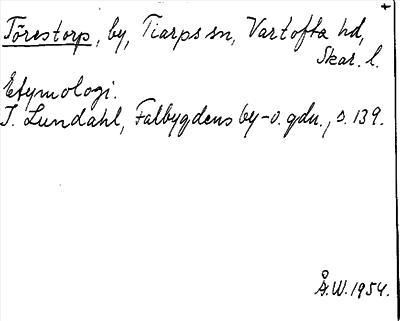 +
Törestorp, by, Tiarps sn, Vartofta hd,
Skar. l.
Etymologi.
I. Lundahl, Falbygdens by-o. gdn., s. 139.
Å.W. 1954.